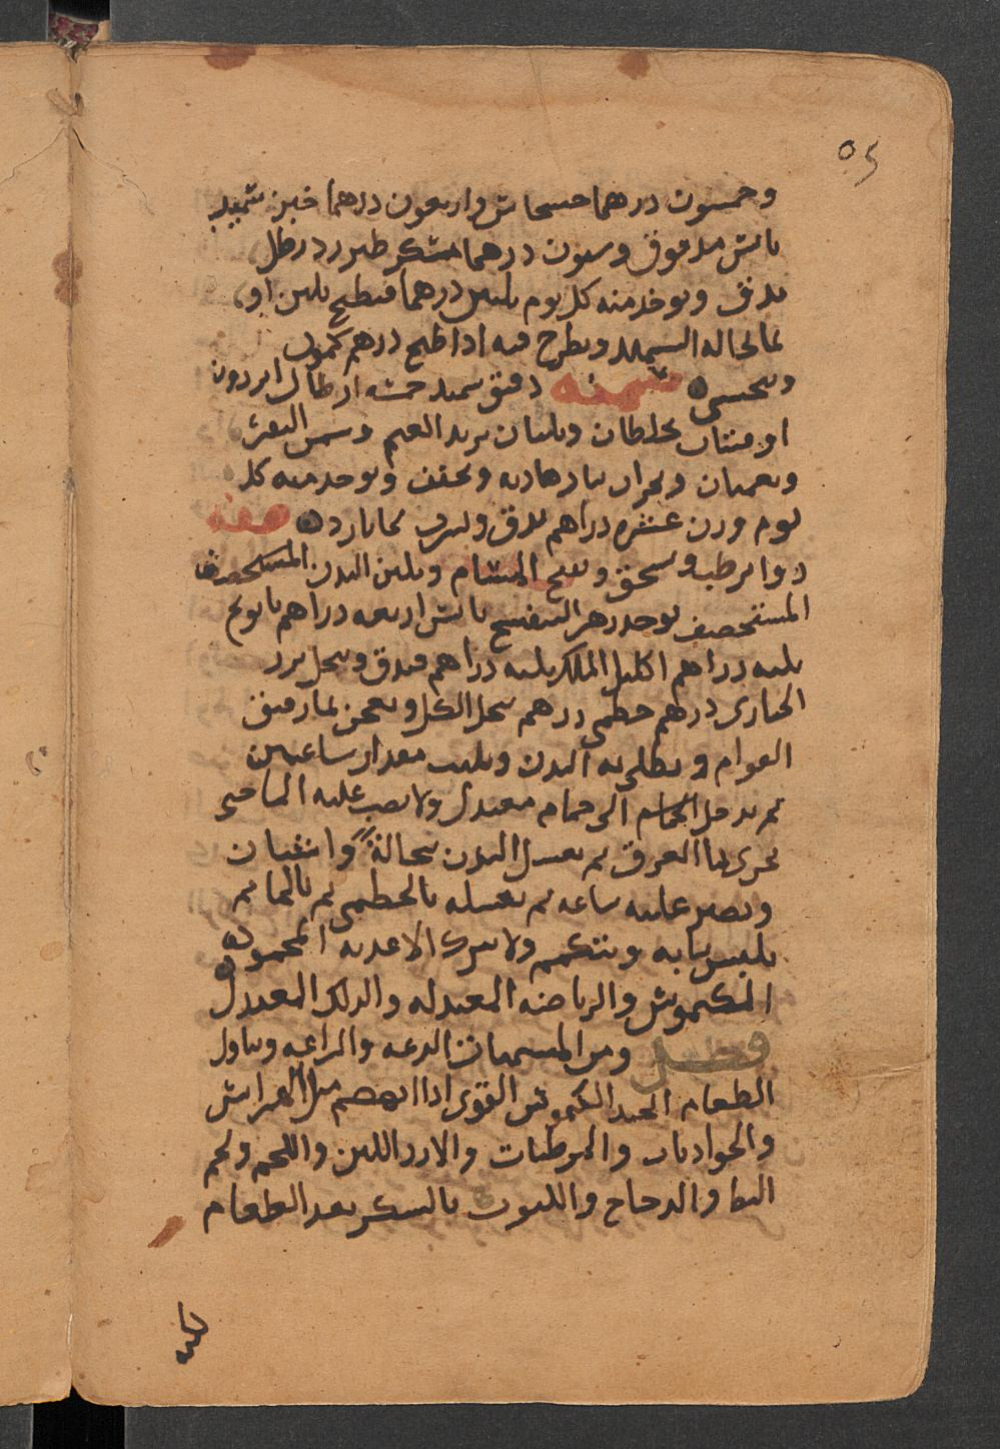 ٥٢
وخمسون درهما خسخاش واربعون درهما خبز سميد
يابس مدقوق وستون درهما سكر طبرزد رطل
يدق ويوخذ منه كل يوم ثلثين درهما فيطبخ بلبن او
بما لحاله السميد ويطرح فيه اذا طبخ درهم كمون
ويتحسى سمنه دقيق سميد خمسه ارطال
يخلطان ويلتان بزبد الغنم وسمن البقر
ويعجنان ويخبزان بنار هاديه ويجفف ويوخذ منه كل
يوم وزن عشره دراهم يدق ويشرب بما بارد صفه
دوا يرطب ويسحق ويفتح المسام ويلين البدن المستحصف
المستحصف يوخذ زهر البنفسج يابس اربعه دراهم بابونج
ثلثه دراهم اكليل الملك ثلثه دراهم فيدق وينخل بزر
الخبازى درهم خطمى درهم ينخل الكل ويعجن بما رقيق
القوام ويطلى به البدن ويلبث مقدار ساعتين
ثم يدخل الحمام الى حمام معتدل ولا يصب عليه الما حتى
يجرى منها العرق ثم يغسل البدن بنخالة واشنان
ويصبر عليه ساعه ثم يغسله بالخطمى ثم بالما ثم
يلبس ثيابه ولا يترك الاغديه المحموده
الكيموس والرياضه المعتدله والدلك المعتدل
فصل ومن المسمنات الدعه والراحه وتناول
الطعام الجيد الكيموس القوى اذا انهضم مثل الهرايس
والجوادبات والمرطبات والارز اللبن واللحم ولحم
البط والدجاج واللبوب بالسكر بعد الطعام